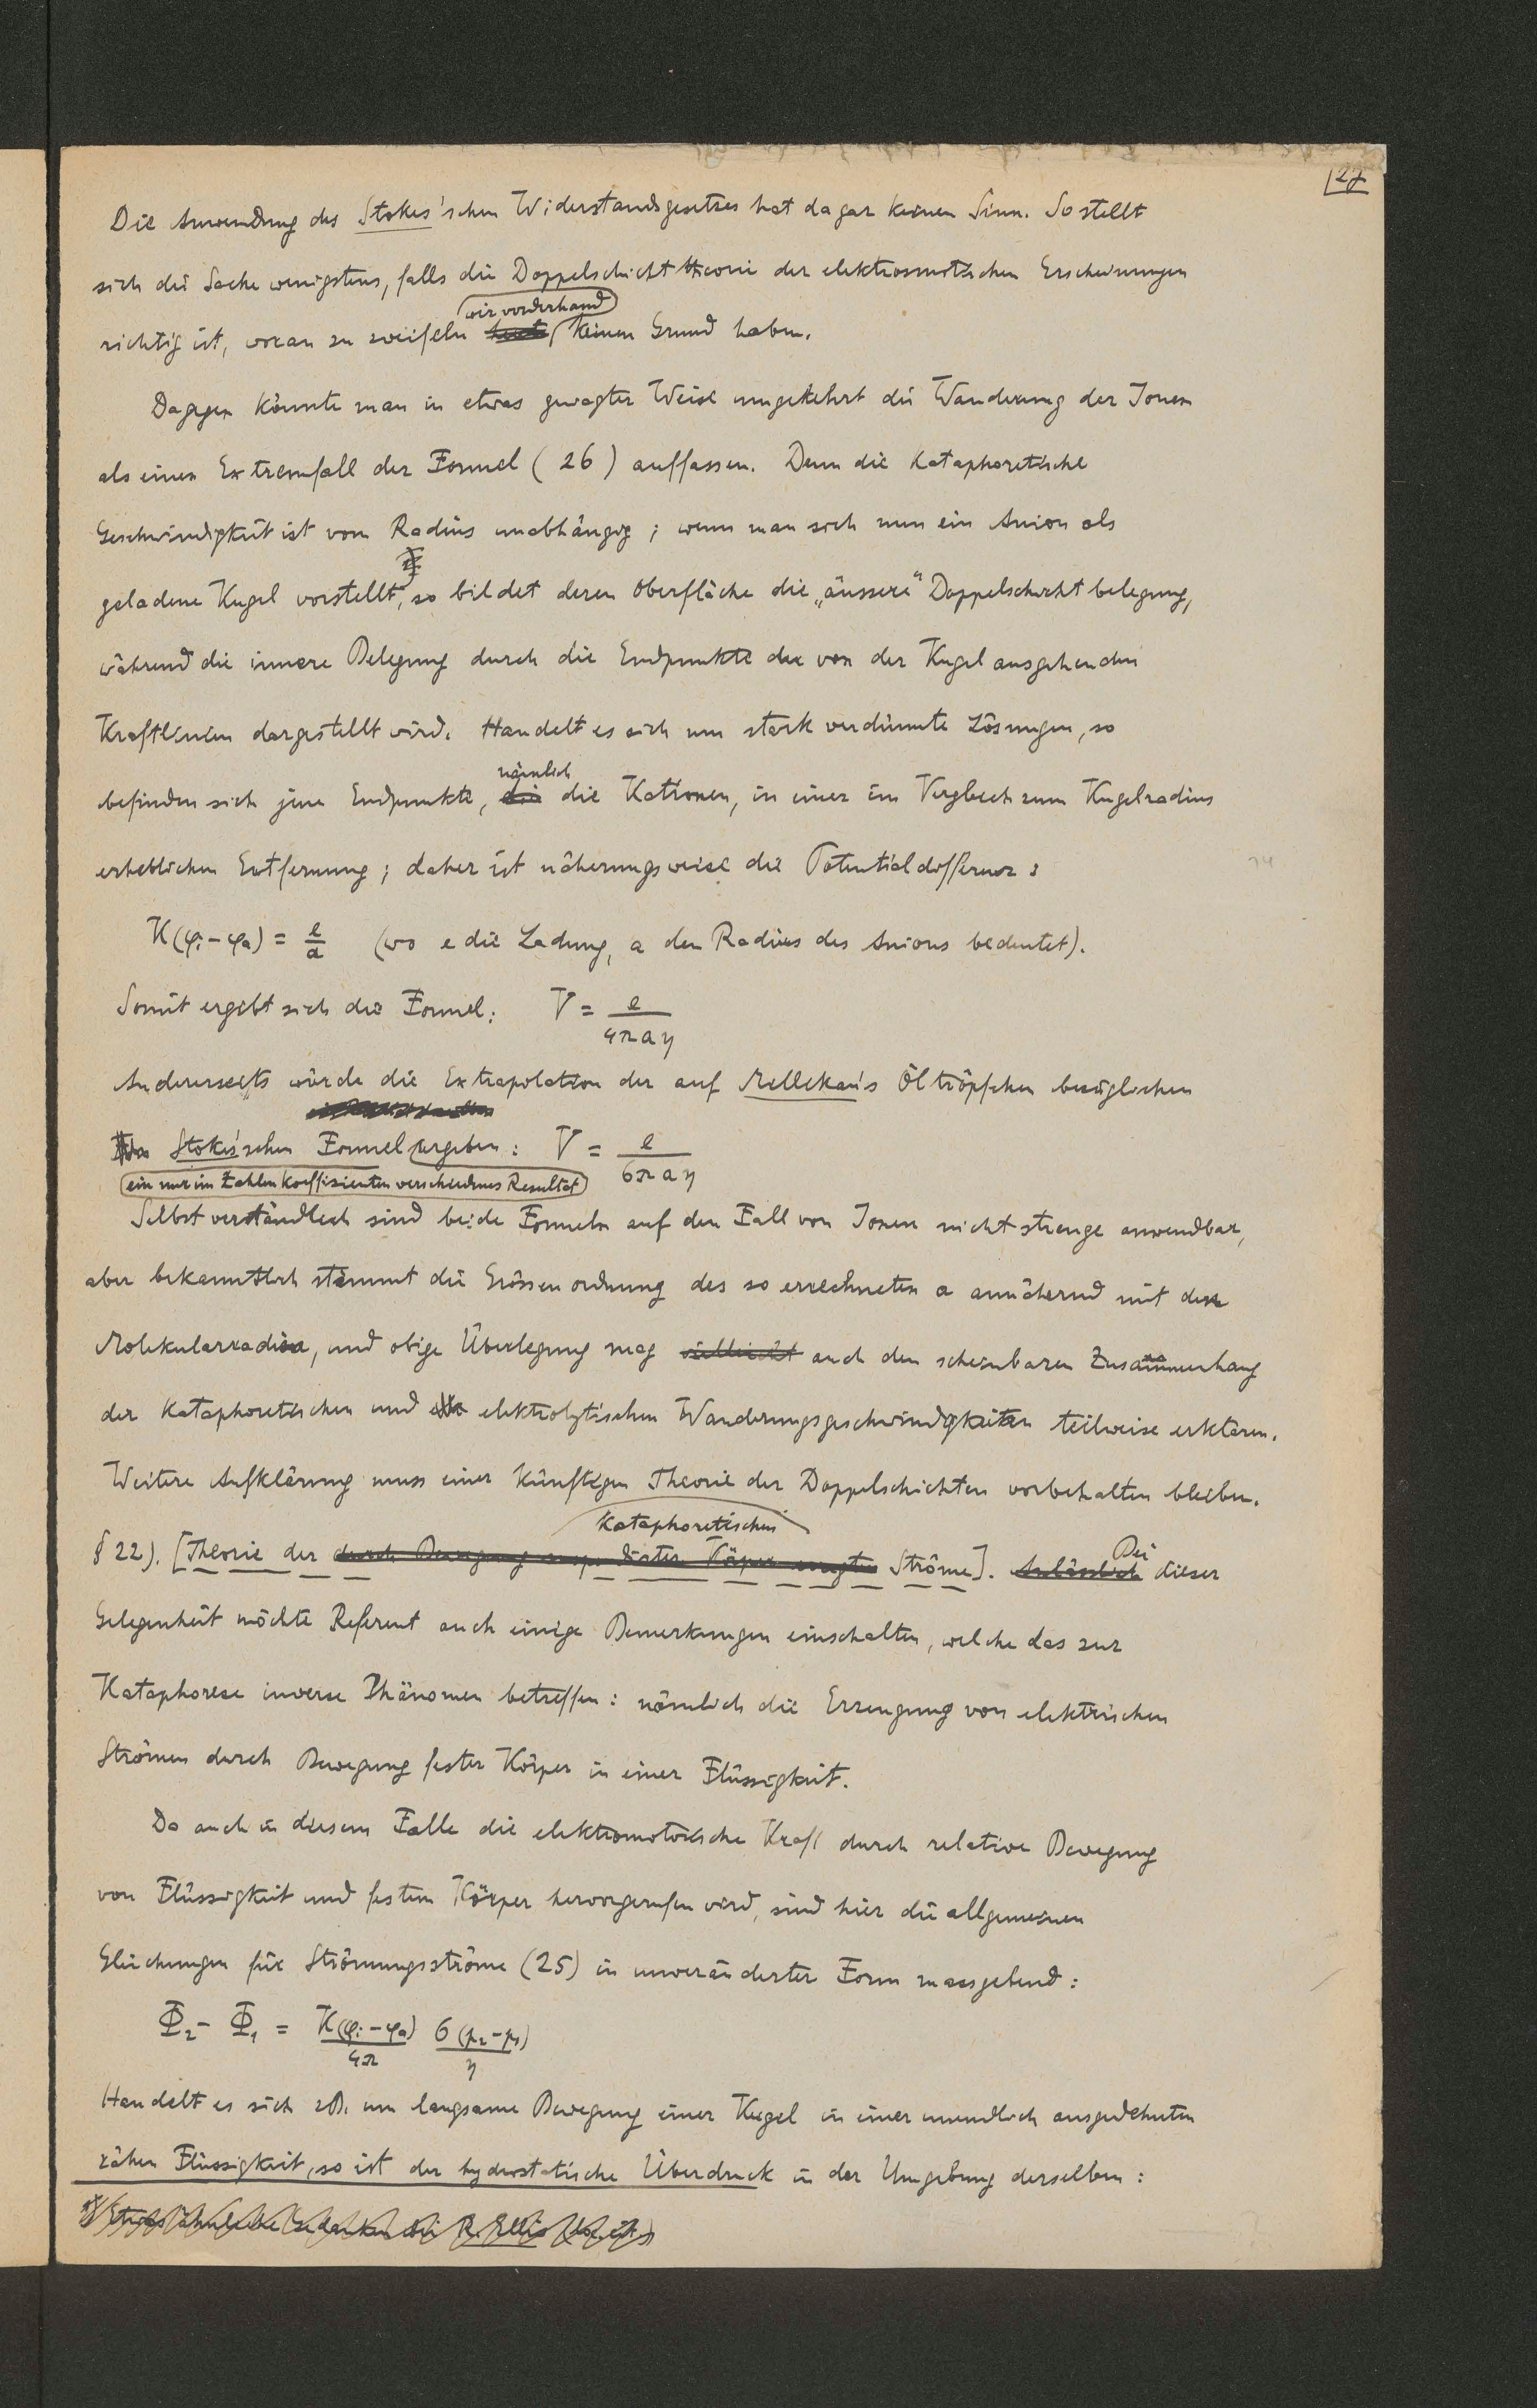 27
Die Anwendung des Stokes'schen Widerstandsgesetzes hat da gar keinen Sinn. So stellt
sich die Sache wenigstens, falls die Doppelschichttheorie der elektrosmotischen Erscheinungen
wir vorderhand
richtig ist, woran zu zweifeln keinen Grund haben.
Dagegen könnte man in etwas gewagter Weise umgekehrt die Wanderung der Ionen
als einen Extremfall der Formel (26) auffassen. Denn die kataphoretische
Geschwindigkeit ist vom Radius unabhängig; wenn man sich nun ein Anion als
geladene Kugel vorstellt, so bildet deren Oberfläche die „äussere" Doppelschicht belegung,
während die innere Belegung durch die Endpunkte der von der Kugel ausgehenden
Kraftlinien dargestellt wird. Handelt es sich um stark verdünnte Lösungen, so
nämlich
befinden sich jene Endpunkte, die die Kationen, in einer im Vergleich zum Kugelradius
erheblichen Entfernung; daher ist näherungsweise die Potentialdifferenz:
K(φi-φa) = e/a (wo e die Ladung, a den Radius des Anions bedeutet).
Somit ergibt sich die Formel: V = e/4πaη
Andererseits würde die Extrapolation der auf Millikan's Öltröpfchen bezüglichen
Stokes'schen Formel ergeben: V = e/6πaη
ein nur im Zahlenkoeffizienten verschiedenes Resultat
Selbstverständlich sind beide Formeln auf den Fall von Ionen nicht strenge anwendbar,
aber bekanntlich stimmt die Grössenordnung des so errechneten a annähernd mit dem
Molekularradius, und obige Überlegung mag vielleicht auch den scheinbaren Zusammenhang
der kataphoretischen und elektrolytischen Wanderungsgeschwindigkeiten teilweise erklären.
Weitere Aufklärung muss einer künftigen Theorie der Doppelschichten vorbehalten bleiben.
kataphoretischen
§ 22). [Theorie der durch Bewegung susp. fester Körper erregten Ströme]. Anlässlich Bei dieser
Gelegenheit möchte Referent auch einige Bemerkungen einschalten, welche das zur
Kataphorese inverse Phänomen betreffen: nämlich die Erzeugung von elektrischen
Strömen durch Bewegung fester Körper in einer Flüssigkeit.
Da auch in diesem Falle die elektromotorische Kraft durch relative Bewegung
von Flüssigkeit und festem Körper hervorgerufen wird, sind hier die allgemeinen
Gleichungen für Strömungsströme (25) in unveränderter Form massgebend:
Φ₂ - Φ₁ = K(φi-φa)/4π σ(p₂-p₁)/η
Handelt es sich zB. um langsame Bewegung einer Kugel in einer unendlich ausgedehnten
zähen Flüssigkeit, so ist der hydrostatische Überdruck in der Umgebung derselben:
*) Etwas ähnliche Gedanken bei R. Ellis (loc. cit.)